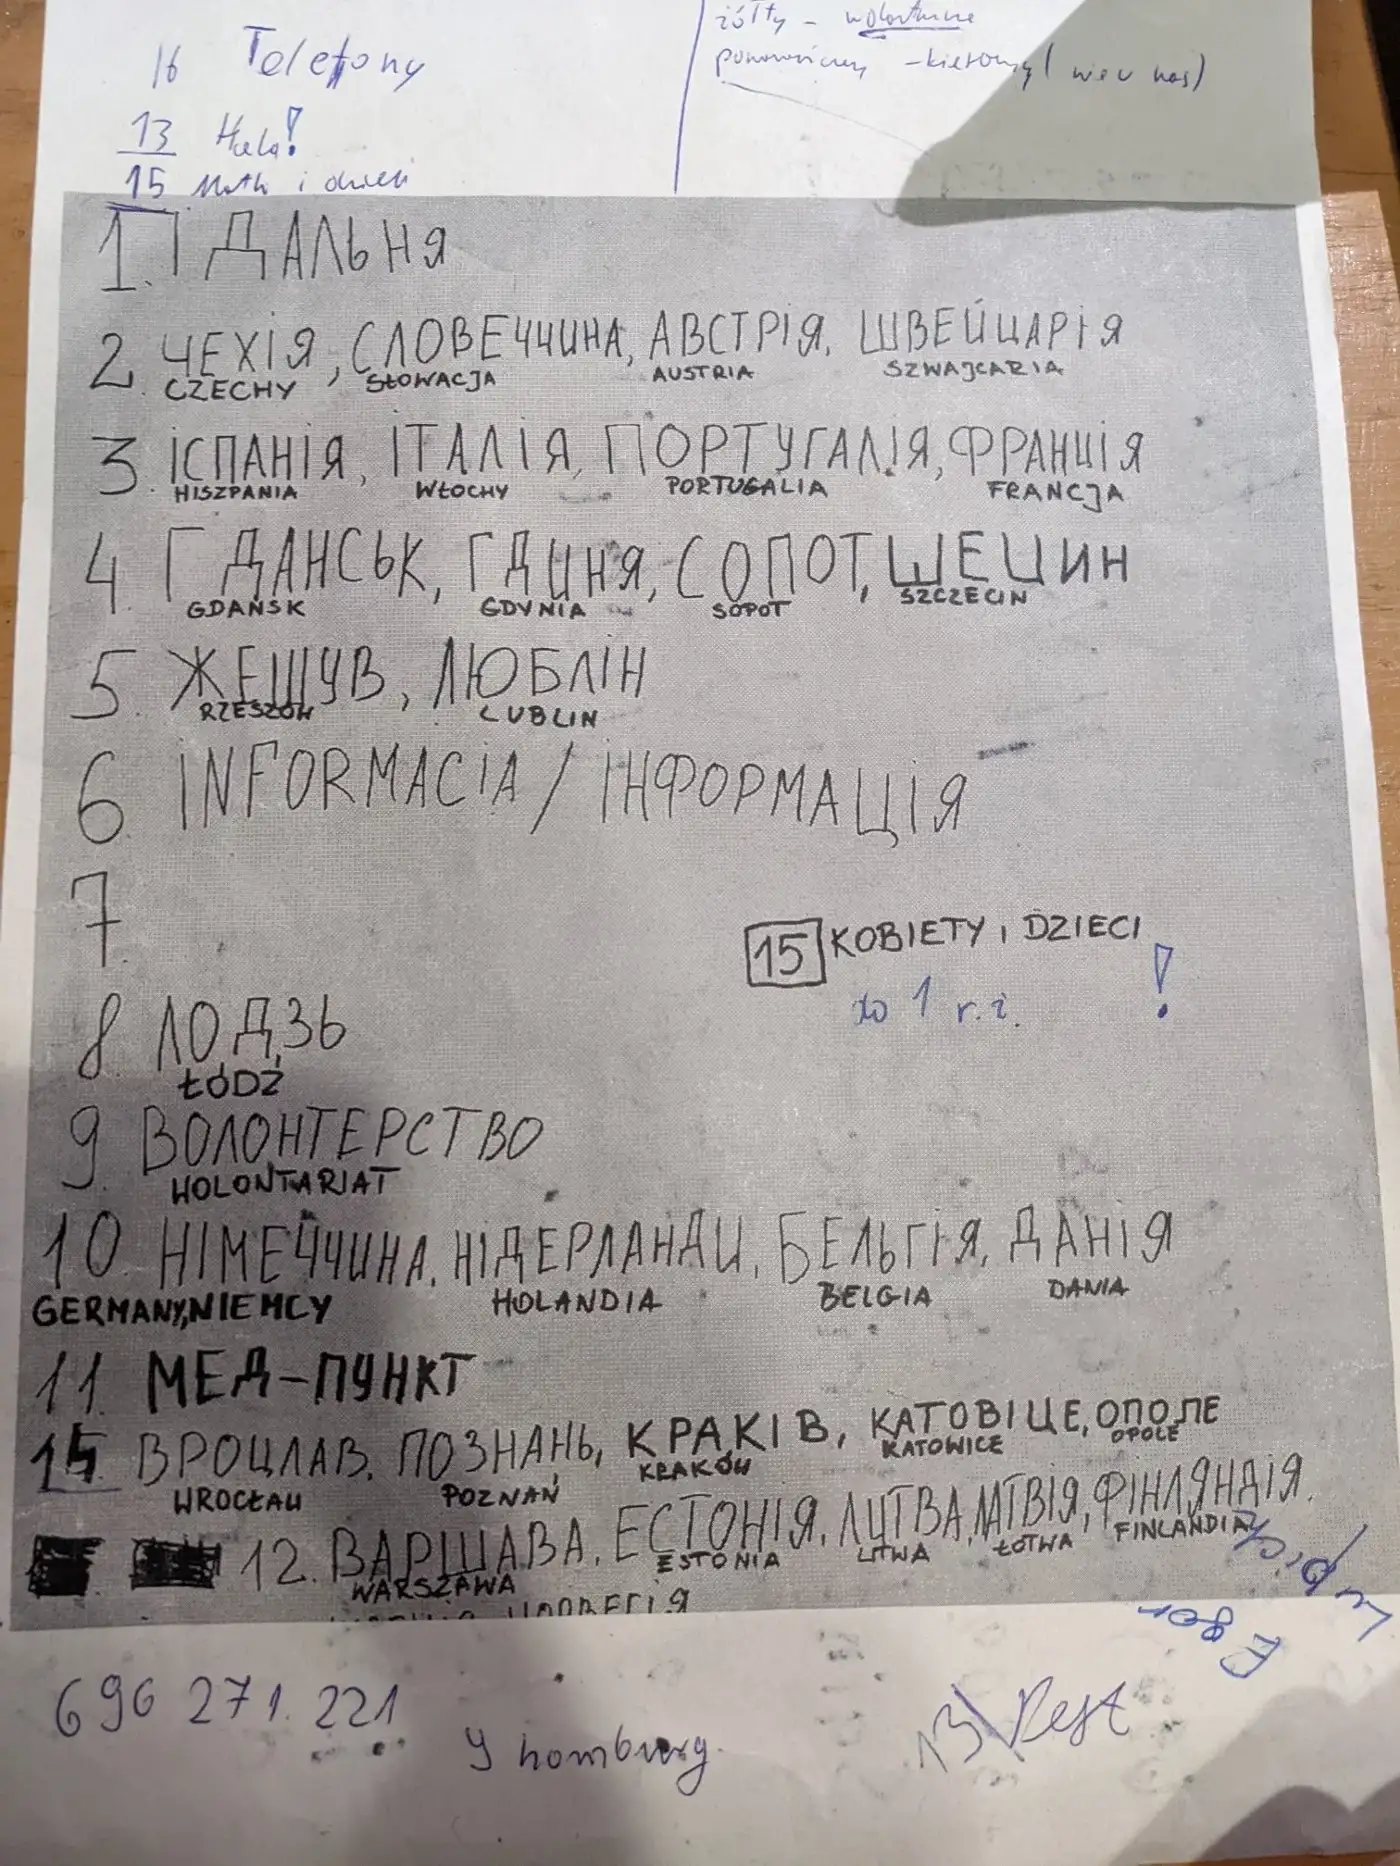 żółty - wolontariusz
16 Telefony
pomarańczowy - kierowcy (
13 Hala!
15 Matki i dzieci
1. ЇДАЛЬНЯ
2. ЧЕХІЯ, СЛОВЕЧЧИНА, АВСТРІЯ, ШВЕЙЦАРІЯ
CZECHY SŁOWACJA AUSTRIA SZWAJCARIA
3. ІСПАНІЯ, ІТАЛІЯ, ПОРТУГАЛІЯ, ФРАНЦІЯ
HISZPANIA WŁOCHY PORTUGALIA FRANCJA
4. ГДАНСЬК, ГДИНЯ, СОПОТ, ШЕЦИН
GDAŃSK GDYNIA SOPOT SZCZECIN
5. ЖЕШУВ, ЛЮБЛІН
RZESZÓW LUBLIN
6. INFORMACIA / ІНФОРМАЦІЯ
7.
15 KOBIETY i DZIECI
do 1 r.ż. !
8. ЛОДЗЬ
ŁÓDŹ
9. ВОЛОНТЕРСТВО
WOLONTARIAT
10. НІМЕЧЧИНА, НІДЕРЛАНДИ, БЕЛЬГІЯ, ДАНІЯ
GERMANY, NIEMCY HOLANDIA BELGIA DANIA
11. МЕД-ПУНКТ
15 ВРОЦЛАВ, ПОЗНАНЬ, КРАКІВ, КАТОВІЦЕ, ОПОЛЕ
WROCŁAW POZNAŃ KRAKÓW KATOWICE OPOLE
12. ВАРШАВА, ЕСТОНІЯ, ЛИТВА, ЛАТВІЯ, ФІНЛЯНДІЯ.
WARSZAWA ESTONIA LITWA ŁOTWA FINLANDIA
НОРВЕГІЯ
Egor
696 271. 221
13 Rest
9 homburg.